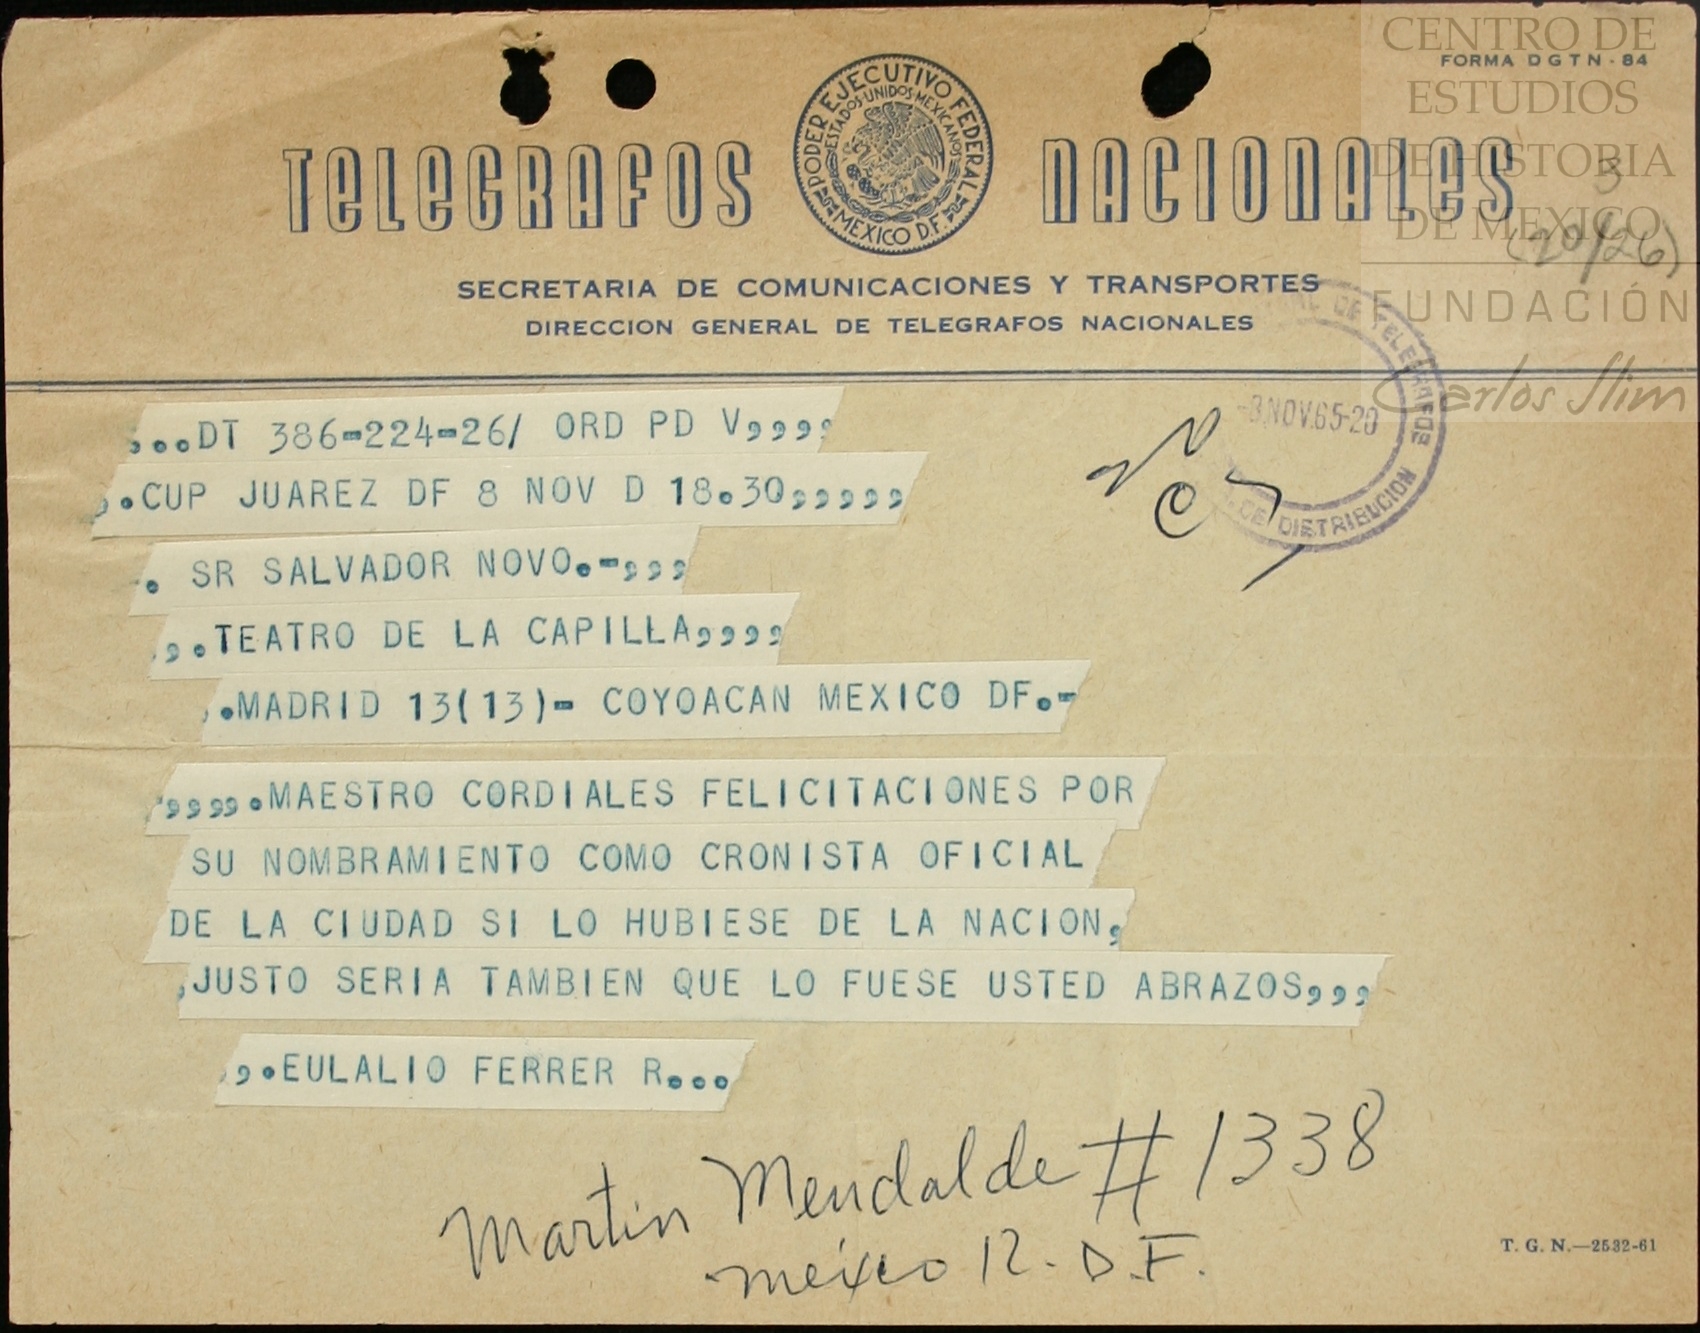 CENTRO DE
FORMA DGTN-84
ESTUDIOS
DE HISTORIA
DE MEXICO
FUNDACIÓN
Carlos Slim
3
(20/26)
PODER EJECUTIVO FEDERAL
ESTADOS UNIDOS MEXICANOS
MEXICO D.F.
TELEGRAFOS NACIONALES
SECRETARIA DE COMUNICACIONES Y TRANSPORTES
DIRECCION GENERAL DE TELEGRAFOS NACIONALES
DE TELEGRAFOS
NOV.65-20
DE DISTRIBUCION
,..DT 386-224-26/ ORD PD V,,,,
,.CUP JUAREZ DF 8 NOV D 18.30,,,,,
. SR SALVADOR NOVO.-,,,
,,.TEATRO DE LA CAPILLA,,,,
,.MADRID 13(13)- COYOACAN MEXICO DF.-
,,,,,.MAESTRO CORDIALES FELICITACIONES POR
SU NOMBRAMIENTO COMO CRONISTA OFICIAL
DE LA CIUDAD SI LO HUBIESE DE LA NACION,
,JUSTO SERIA TAMBIEN QUE LO FUESE USTED ABRAZOS,,,
,,.EULALIO FERRER R...
Martin Mendalde # 1338
méxico 12. D.F.
T. G. N.—2532-61